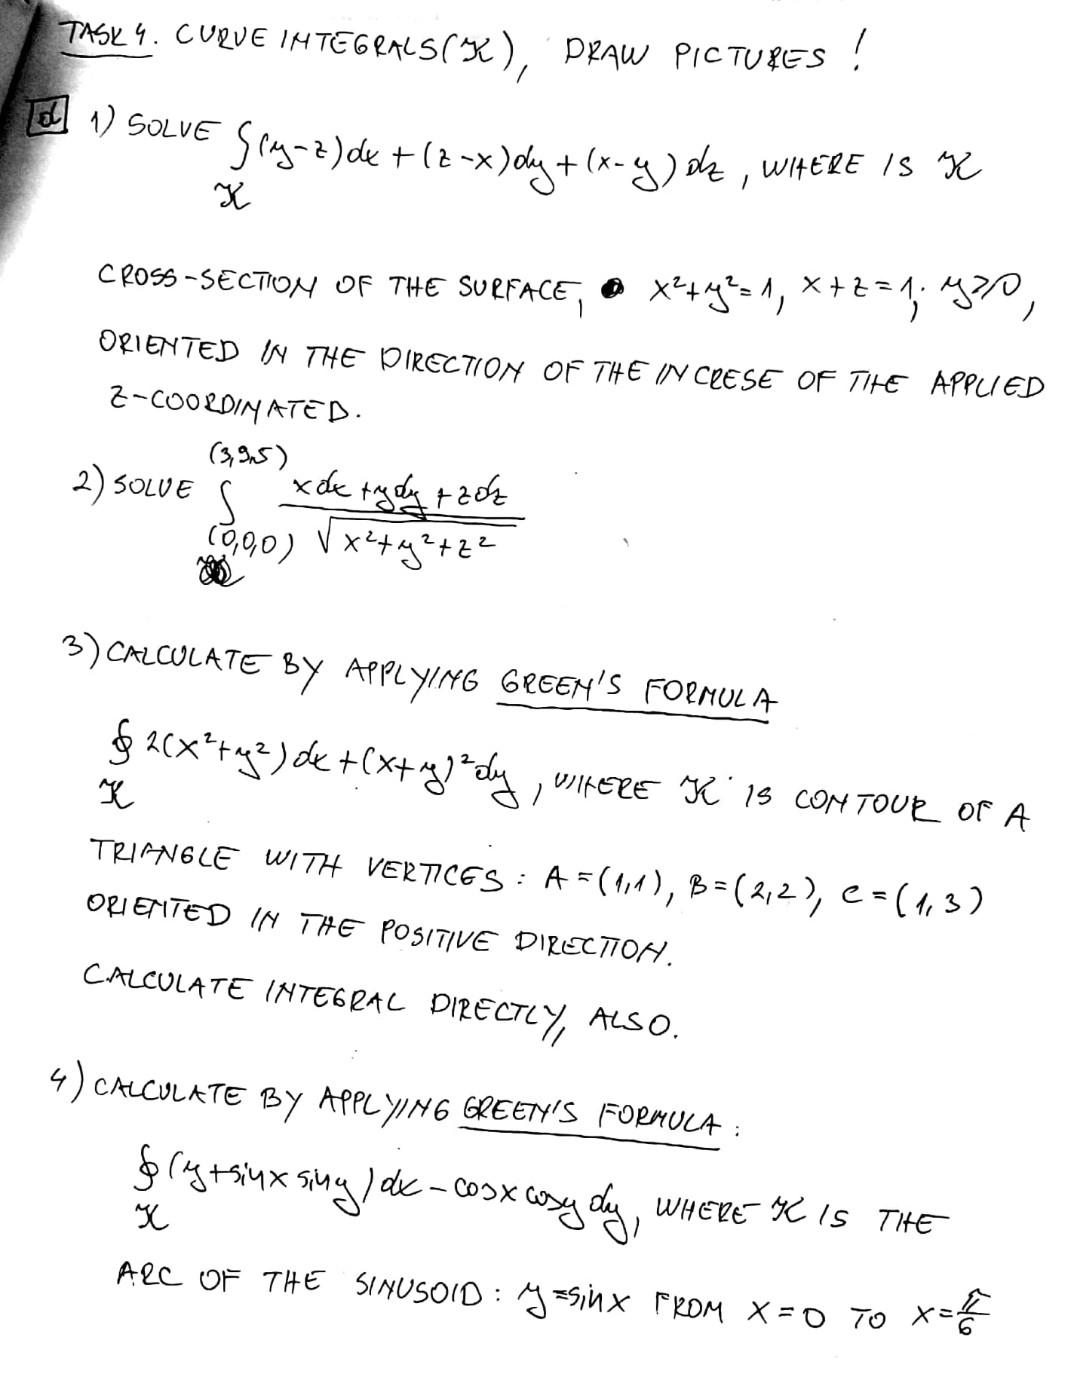 TASK 4. CURVE INTEGRALS(K), DRAW PICTURES !
d 1) SOLVE ∫(y-z)dx + (z-x)dy + (x-y)dz , WHERE IS K
K
CROSS-SECTION OF THE SURFACE, x²+y²=1, x+z=1; y≥0,
ORIENTED IN THE DIRECTION OF THE INCRESE OF THE APPLIED
Z-COORDINATED.
(3,9,5)
2) SOLVE ∫ xdx + ydy + zdz
(0,0,0) √x²+y²+z²
3) CALCULATE BY APPLYING GREEN'S FORMULA
∮ 2(x²+y²)dx + (x+y)²dy , WHERE K IS CONTOUR OF A
K
TRIANGLE WITH VERTICES : A=(1,1), B=(2,2), C=(1,3)
ORIENTED IN THE POSITIVE DIRECTION.
CALCULATE INTEGRAL DIRECTLY, ALSO.
4) CALCULATE BY APPLYING GREEN'S FORMULA :
∮(y+sinx siny)dx - cosx cosy dy, WHERE K IS THE
K
ARC OF THE SINUSOID : y=sinx FROM X=0 TO X=π/6